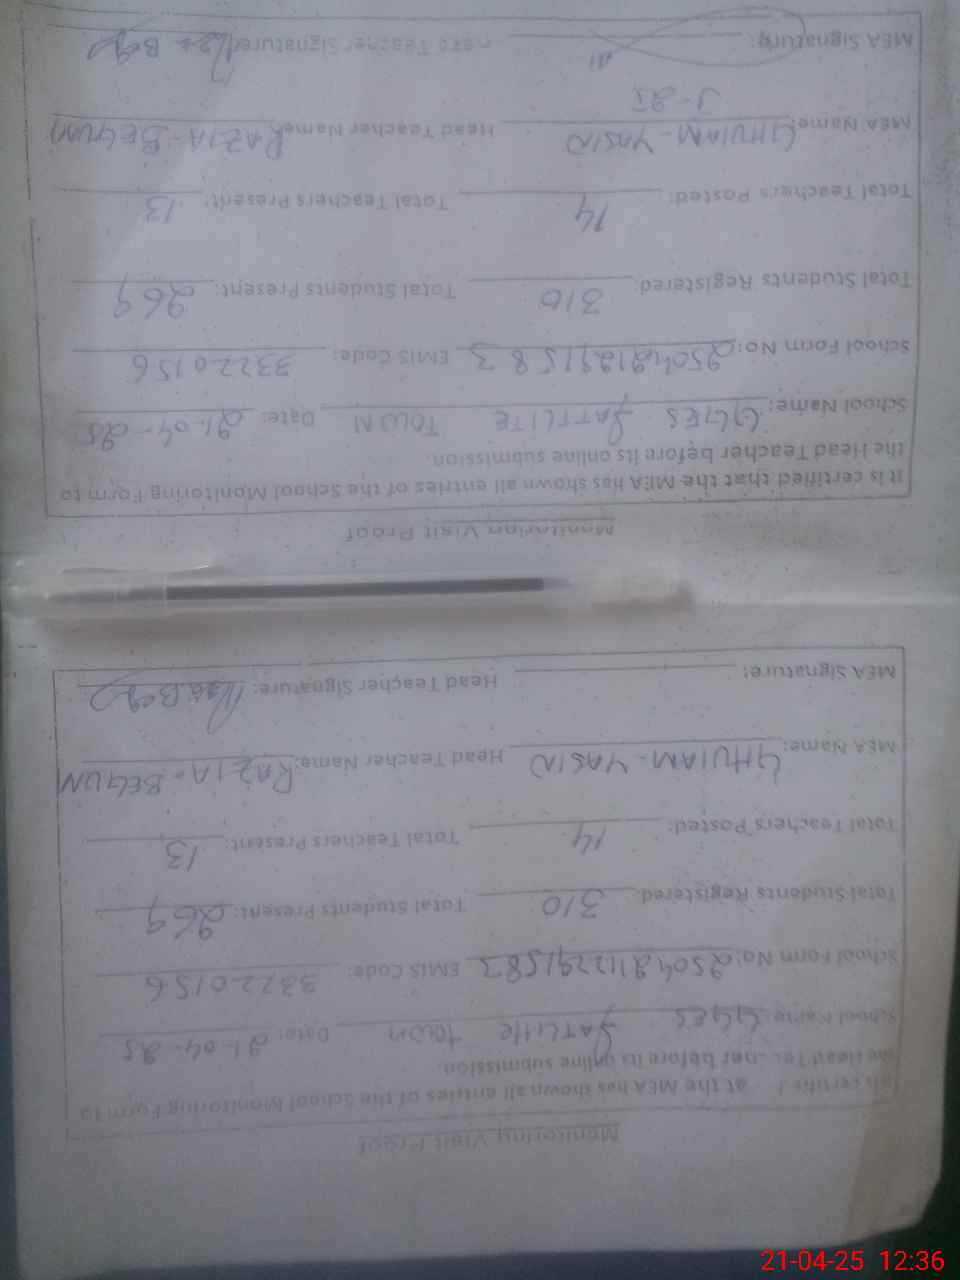 Monitoring Visit Proof
at the MEA has shown all entries of the School Monitoring Form to
the Head before its online submission.
School Name: GGES SATLITE TOWN Date: 21-04-25
School Form No: 25042112291583 EMIS Code: 33220156
Total Students Registered: 310 Total Students Present: 269
Total Teachers Posted: 14 Total Teachers Present: 13
MEA Name: GHULAM-YASIN Head Teacher Name: RAZIA-BEGUM
MEA Signature: Head Teacher Signature:
Monitoring Visit Proof
It is certified that the MEA has shown all entries of the School Monitoring Form to
the Head Teacher before its online submission.
School Name: GGES SATTLITE TOWN Date: 21-04-25
School Form No: EMIS Code: 33220156
Total Students Registered: 310 Total Students Present: 269
Total Teachers Posted: 14 Total Teachers Present: 13
MEA Name: GHULAM-YASIN Head Teacher Name: RAZIA-BEGUM
MEA Signature: Teacher Signature:
21-04-25 12:36